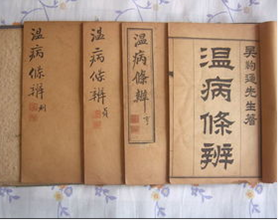 吳鞠通先生著
温病條辨
温病條辨 亨
温病條辨 貞
温病條辨 利